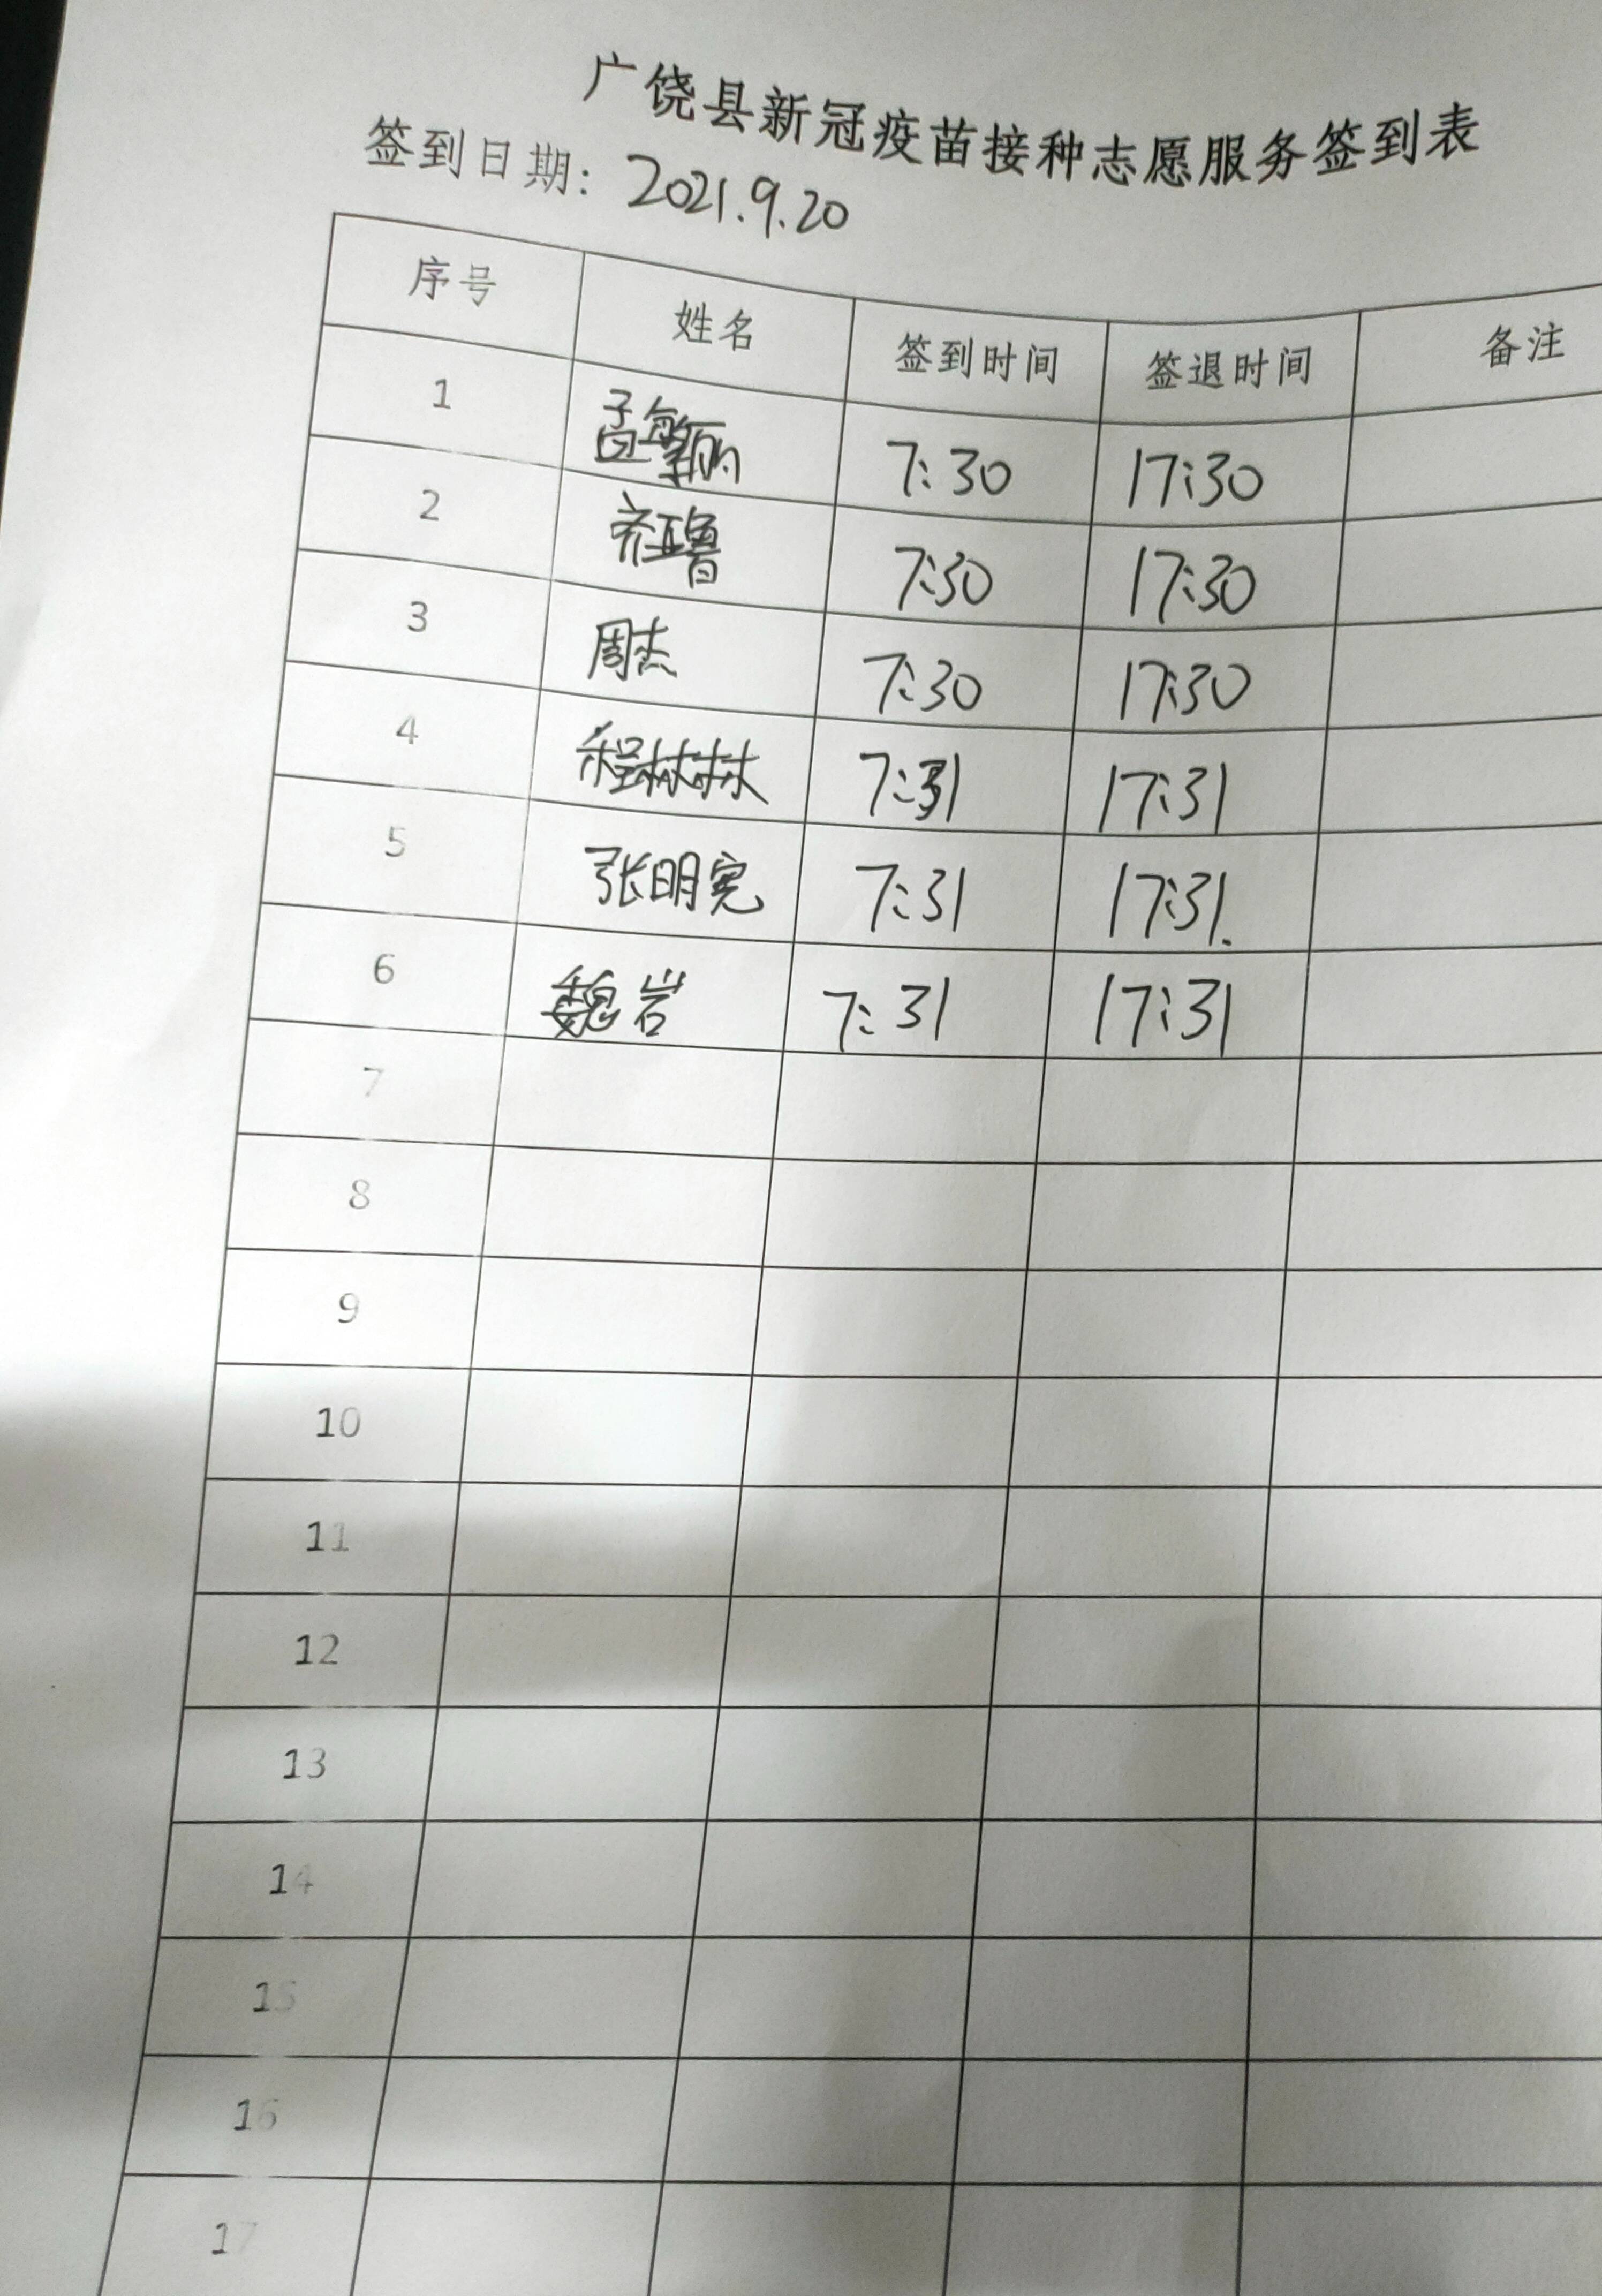 广饶县新冠疫苗接种志愿服务签到表
签到日期: 2021.9.20
序号 姓名 签到时间 签退时间 备注
1 孟繁丽 7:30 17:30
2 齐亚鲁 7:30 17:30
3 周杰 7:30 17:30
4 程林林 7:31 17:31
5 张明宪 7:31 17:31.
6 魏岩 7:31 17:31
7
8
9
10
11
12
13
14
15
16
17